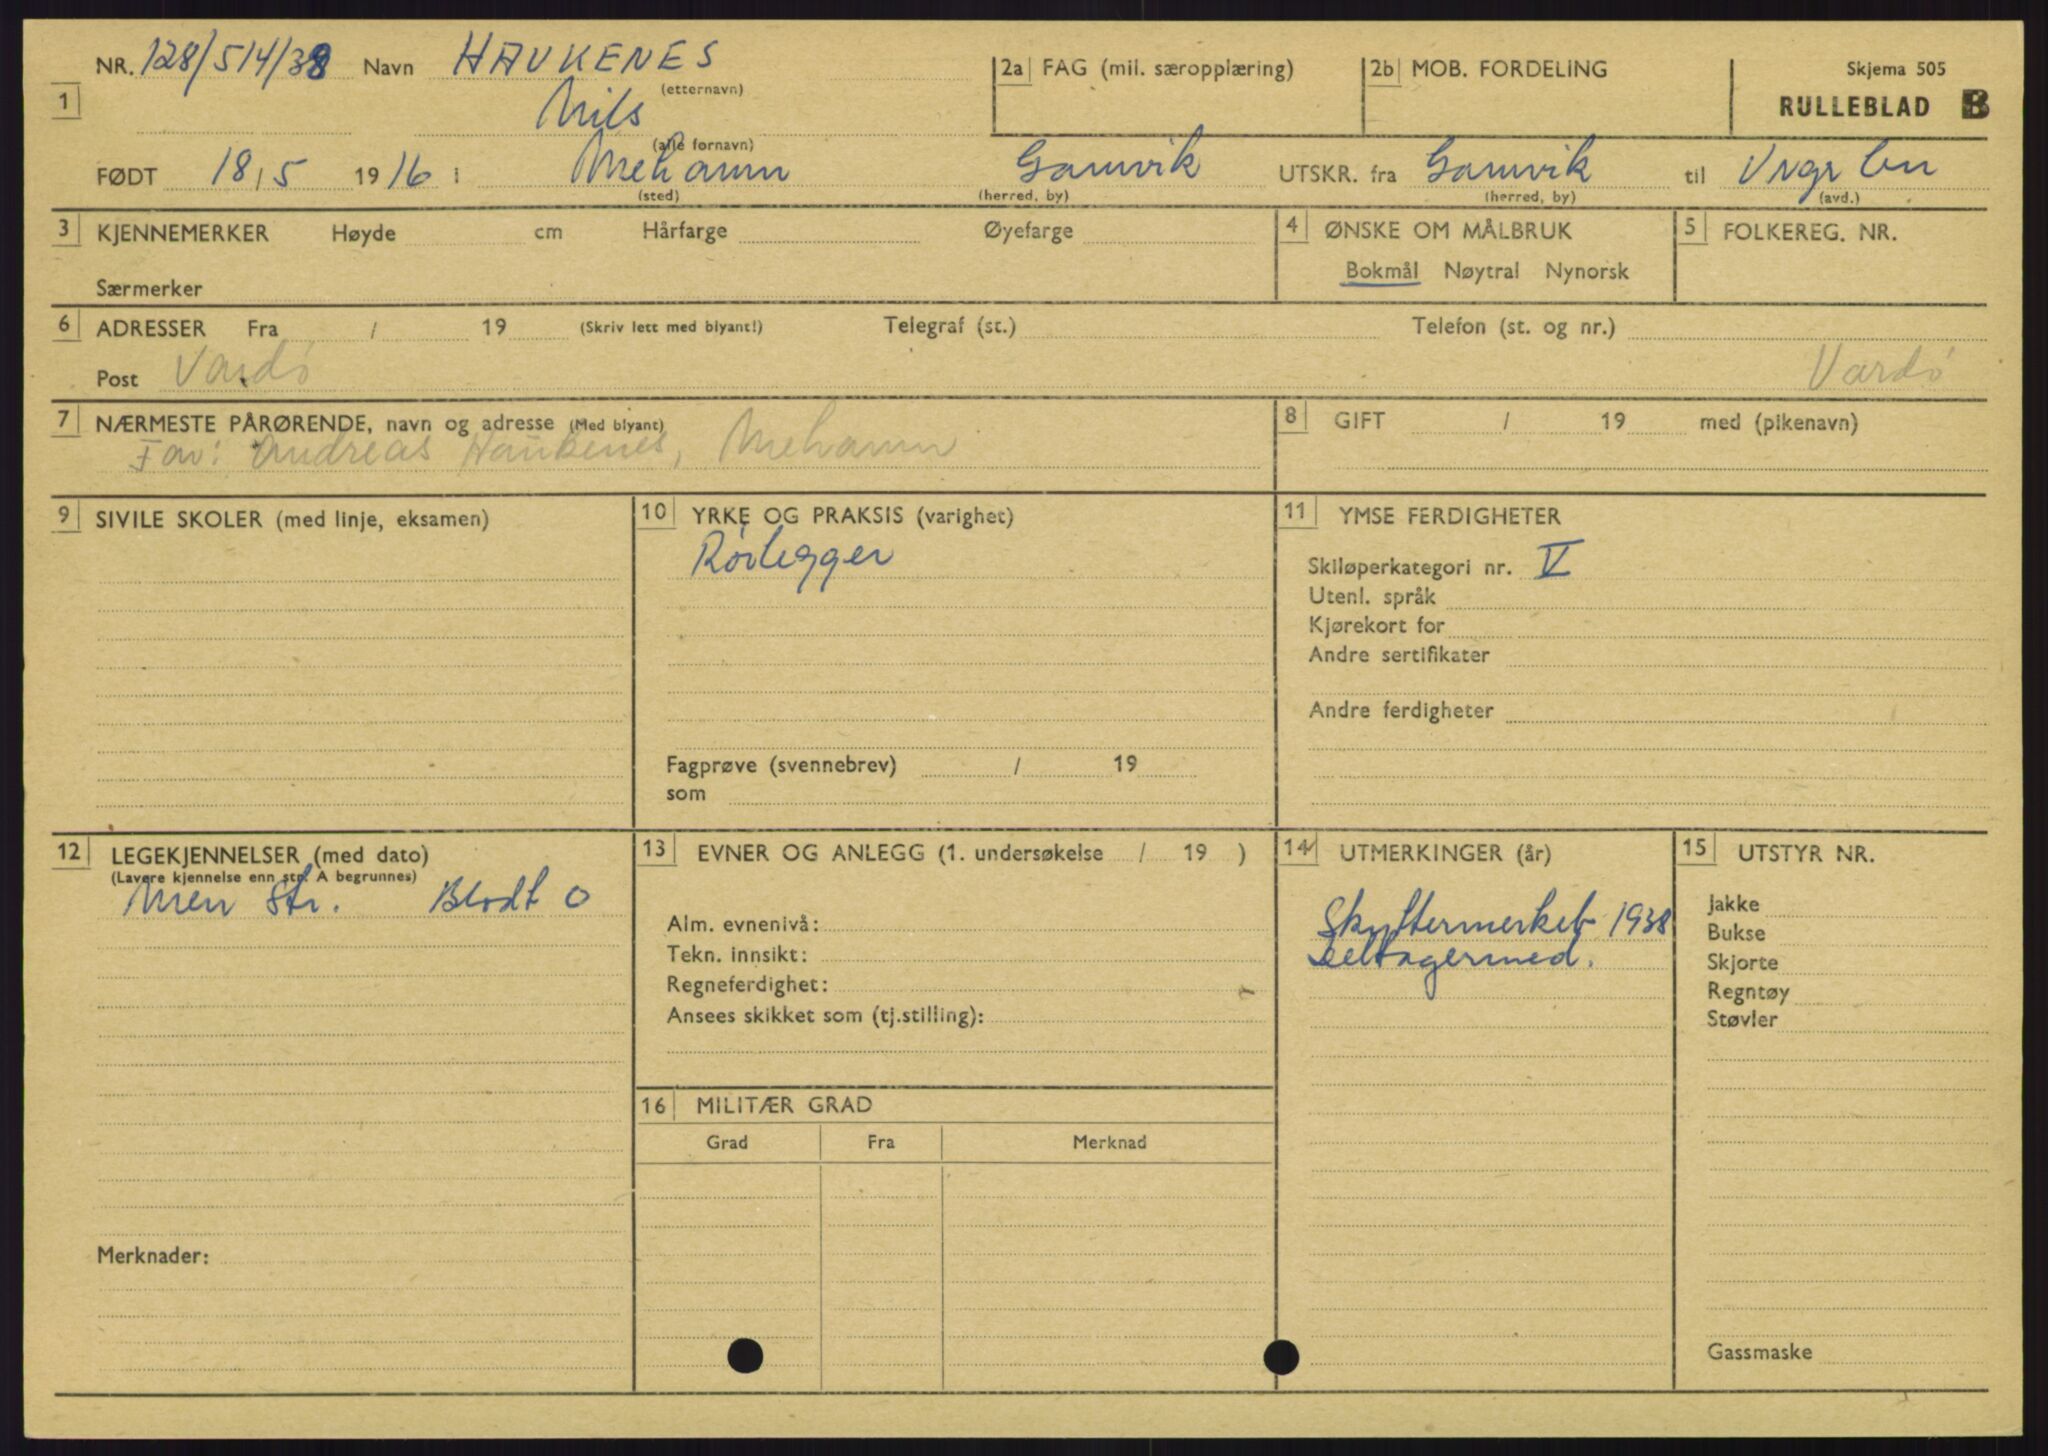 NR. 128/514/38 Navn HAUKENES
(etternavn)
1
Nils
(alle fornavn)
FØDT 18/5 1916 i Mehamn Gamvik
(sted) (herred, by)
2a FAG (mil. særopplæring)
2b MOB. FORDELING
Skjema 505
RULLEBLAD B
UTSKR. fra Gamvik til
(herred, by) (avd.)
3 KJENNEMERKER Høyde cm Hårfarge Øyefarge
Særmerker
4 ØNSKE OM MÅLBRUK
Bokmål Nøytral Nynorsk
5 FOLKEREG. NR.
6 ADRESSER Fra / 19 (Skriv lett med blyant!) Telegraf (st.) Telefon (st. og nr.)
Post Vardö Vardö
7 NÆRMESTE PÅRØRENDE, navn og adresse (Med blyant)
Far: Andreas Haukenes, Mehamn
8 GIFT / 19 med (pikenavn)
9 SIVILE SKOLER (med linje, eksamen)
10 YRKE OG PRAKSIS (varighet)
Rørlegger
Fagprøve (svennebrev) / 19
som
11 YMSE FERDIGHETER
Skiløperkategori nr. V
Utenl. språk
Kjørekort for
Andre sertifikater
Andre ferdigheter
12 LEGEKJENNELSER (med dato)
(Lavere kjennelse enn str. A begrunnes)
Men Str. Blodt O
Merknader:
13 EVNER OG ANLEGG (1. undersøkelse / 19 )
Alm. evnenivå:
Tekn. innsikt:
Regneferdighet:
Ansees skikket som (tj.stilling):
14 UTMERKINGER (år)
Skyttermerket 1938
Deltagermed.
15 UTSTYR NR.
Jakke
Bukse
Skjorte
Regntøy
Støvler
Gassmaske
16 MILITÆR GRAD
Grad Fra Merknad